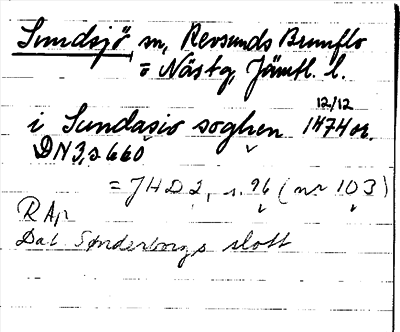 Sundsjö sn, Revsunds Brunflo
o Näs tg, Jämtl. l.
12/12
i Sundasio soghen 1474 or.
DN 3, s 660
= JHD 2, s. 96 (nr 103)
RAp
Dat. Sønderborgs slott